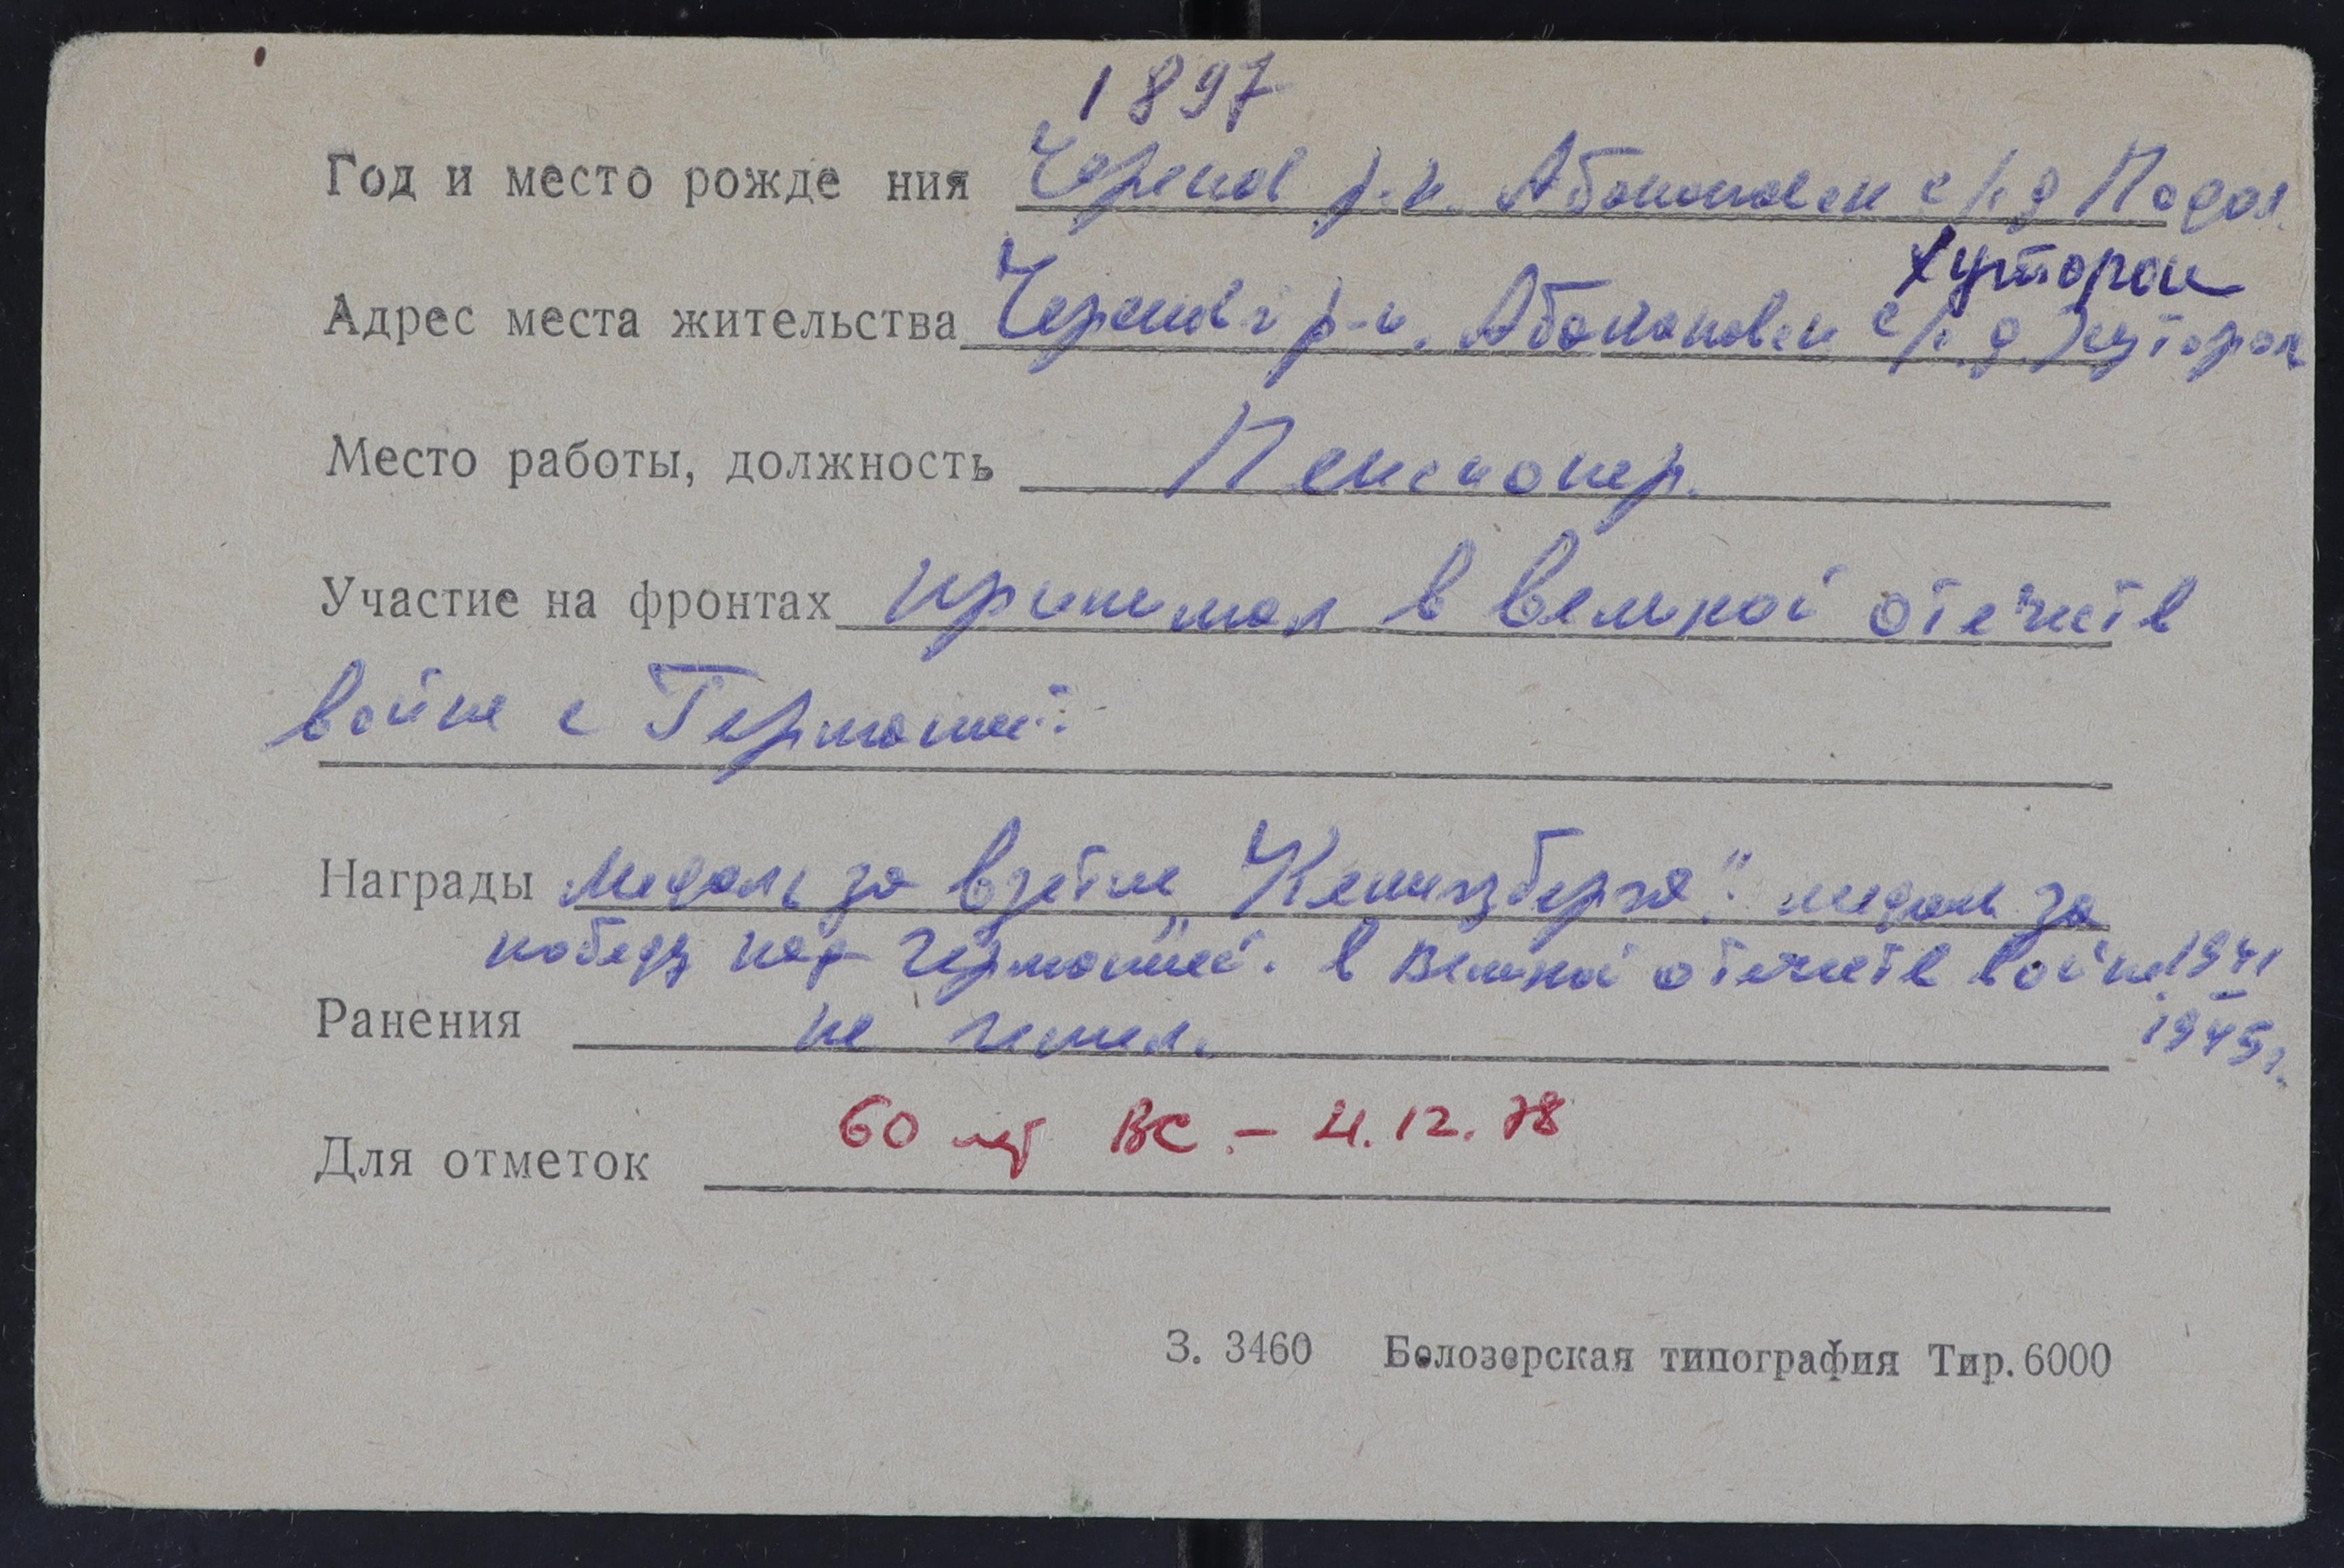 1897
Год и место рожде ния Черепов р-н. Абакановск с/с д Подол.
Хуторок
Адрес места жительства Черепов-г р-н. Абакановск с/с. д. Хуторок
Место работы, должность Пенсионер.
Участие на фронтах принимал в великой отечеств
войне с Германией.
Награды медаль за взятие "Кенигзберга". медаль за
победу над Германией. в великой отечеств войне 1941
–
Ранения не имел. 1945 г.
Для отметок 60 лет ВС. – 4.12.78
З. 3460 Белозерская типография Тир. 6000